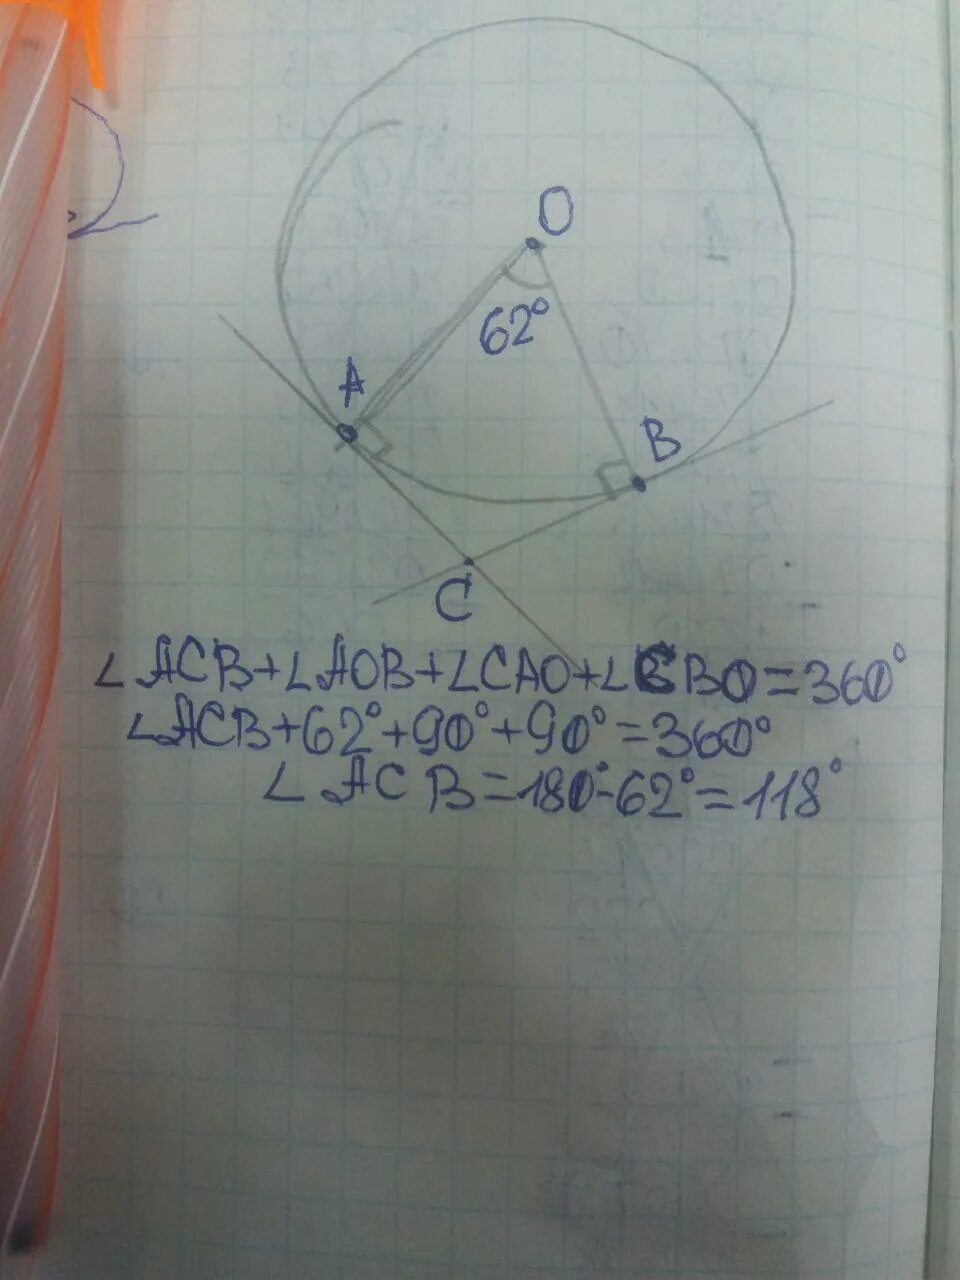 O
62°
A
B
C
∠ACB+∠AOB+∠CAO+∠CBO=360°
∠ACB+62°+90°+90°=360°
∠ACB=180°-62°=118°